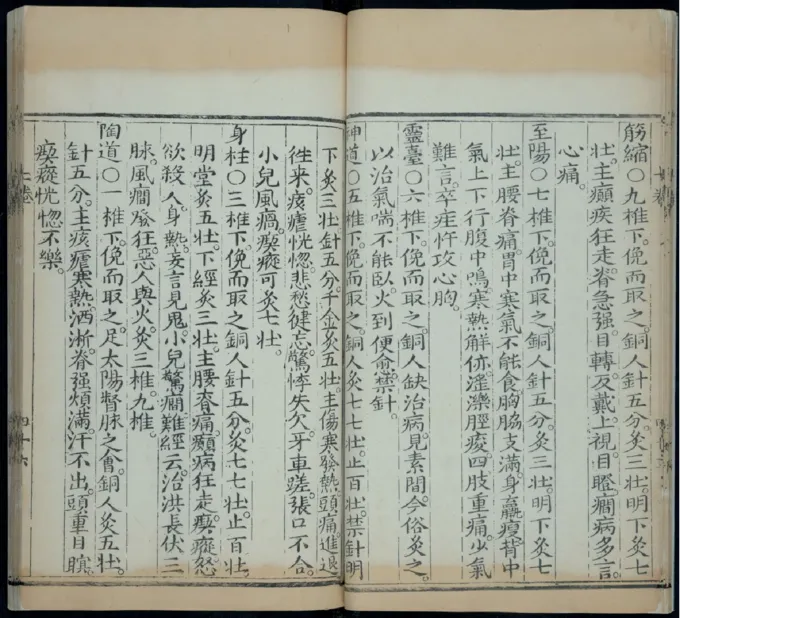 筋縮○九椎下。俛而取之。銅人針五分。灸三壯。明下灸七
壯。主癲疾狂走。脊急强。目轉反戴。上視。目瞪。癎病多言。
心痛。
至陽○七椎下。俛而取之。銅人針五分。灸三壯。明下灸七
壯。主腰脊痛。胃中寒氣。不能食。胸脇支滿。身羸瘦。背中
氣上下行。腹中鳴。寒熱解㑊。淫濼脛痠。四肢重痛。少氣
難言。卒疰忤攻心胸。
靈臺○六椎下。俛而取之。銅人缺治病。見素問。今俗灸之。
以治氣喘不能臥。火到便愈。禁針。
神道○五椎下。俛而取之。銅人灸七七壯。止百壯。禁針。明
下灸三壯。針五分。千金灸五壯。主傷寒發熱。頭痛。進退
徃来。痎瘧。恍惚。悲愁。健忘。驚悸。失欠。牙車蹉。張口不合。
小兒風癇。瘈瘲可灸七壯。
身柱○三椎下。俛而取之。銅人針五分。灸七七壯。止百壯。
明堂灸五壯。下經灸三壯。主腰脊痛。癲病狂走。瘈瘲。怒
欲殺人。身熱。妄言見鬼。小兒驚癎。難經云。治洪長伏三
脉。風癎發狂。惡人與火。灸三椎。九椎。
陶道○一椎下。俛而取之。足太陽督脉之會。銅人灸五壯。
針五分。主痎瘧寒熱。洒淅。脊强。煩滿。汗不出。頭重。目瞑。
瘈瘲。恍惚不樂。
上卷
四十六